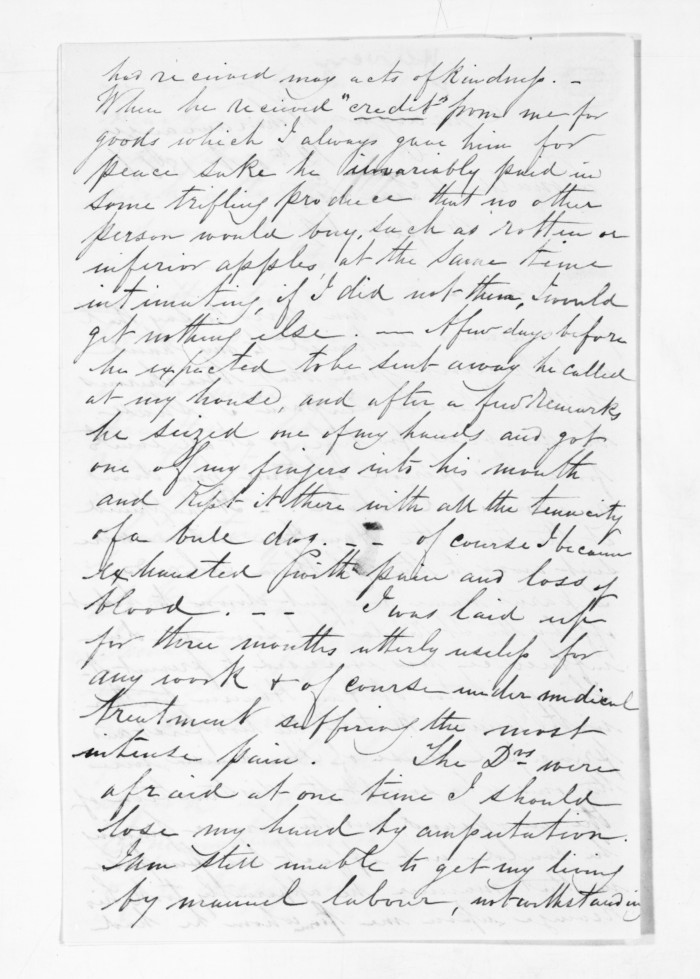 had received many acts of kindness. -
When he received "credit" from me for
goods which I always gave him for
peace sake he invariably paid in
some trifling produce that no other
person would buy, such as rotten or
inferior apples, at the same time
intimating, if I did not them, I would
get nothing else. — A few days before
he expected to be sent away he called
at my house, and after a few remarks
he seized one of my hands and got
one of my fingers into his mouth
and kept it there with all the tenacity
of a bule dog. - - of course I became
exhausted with pain and loss of
blood. - - I was laid up
for three months utterly useless for
any work & of course under medical
treatment suffering the most
intense pain. The Drs were
afraid at one time I should
lose my hand by amputation.
I am still unable to get my living
by manuel labour, notwithstanding